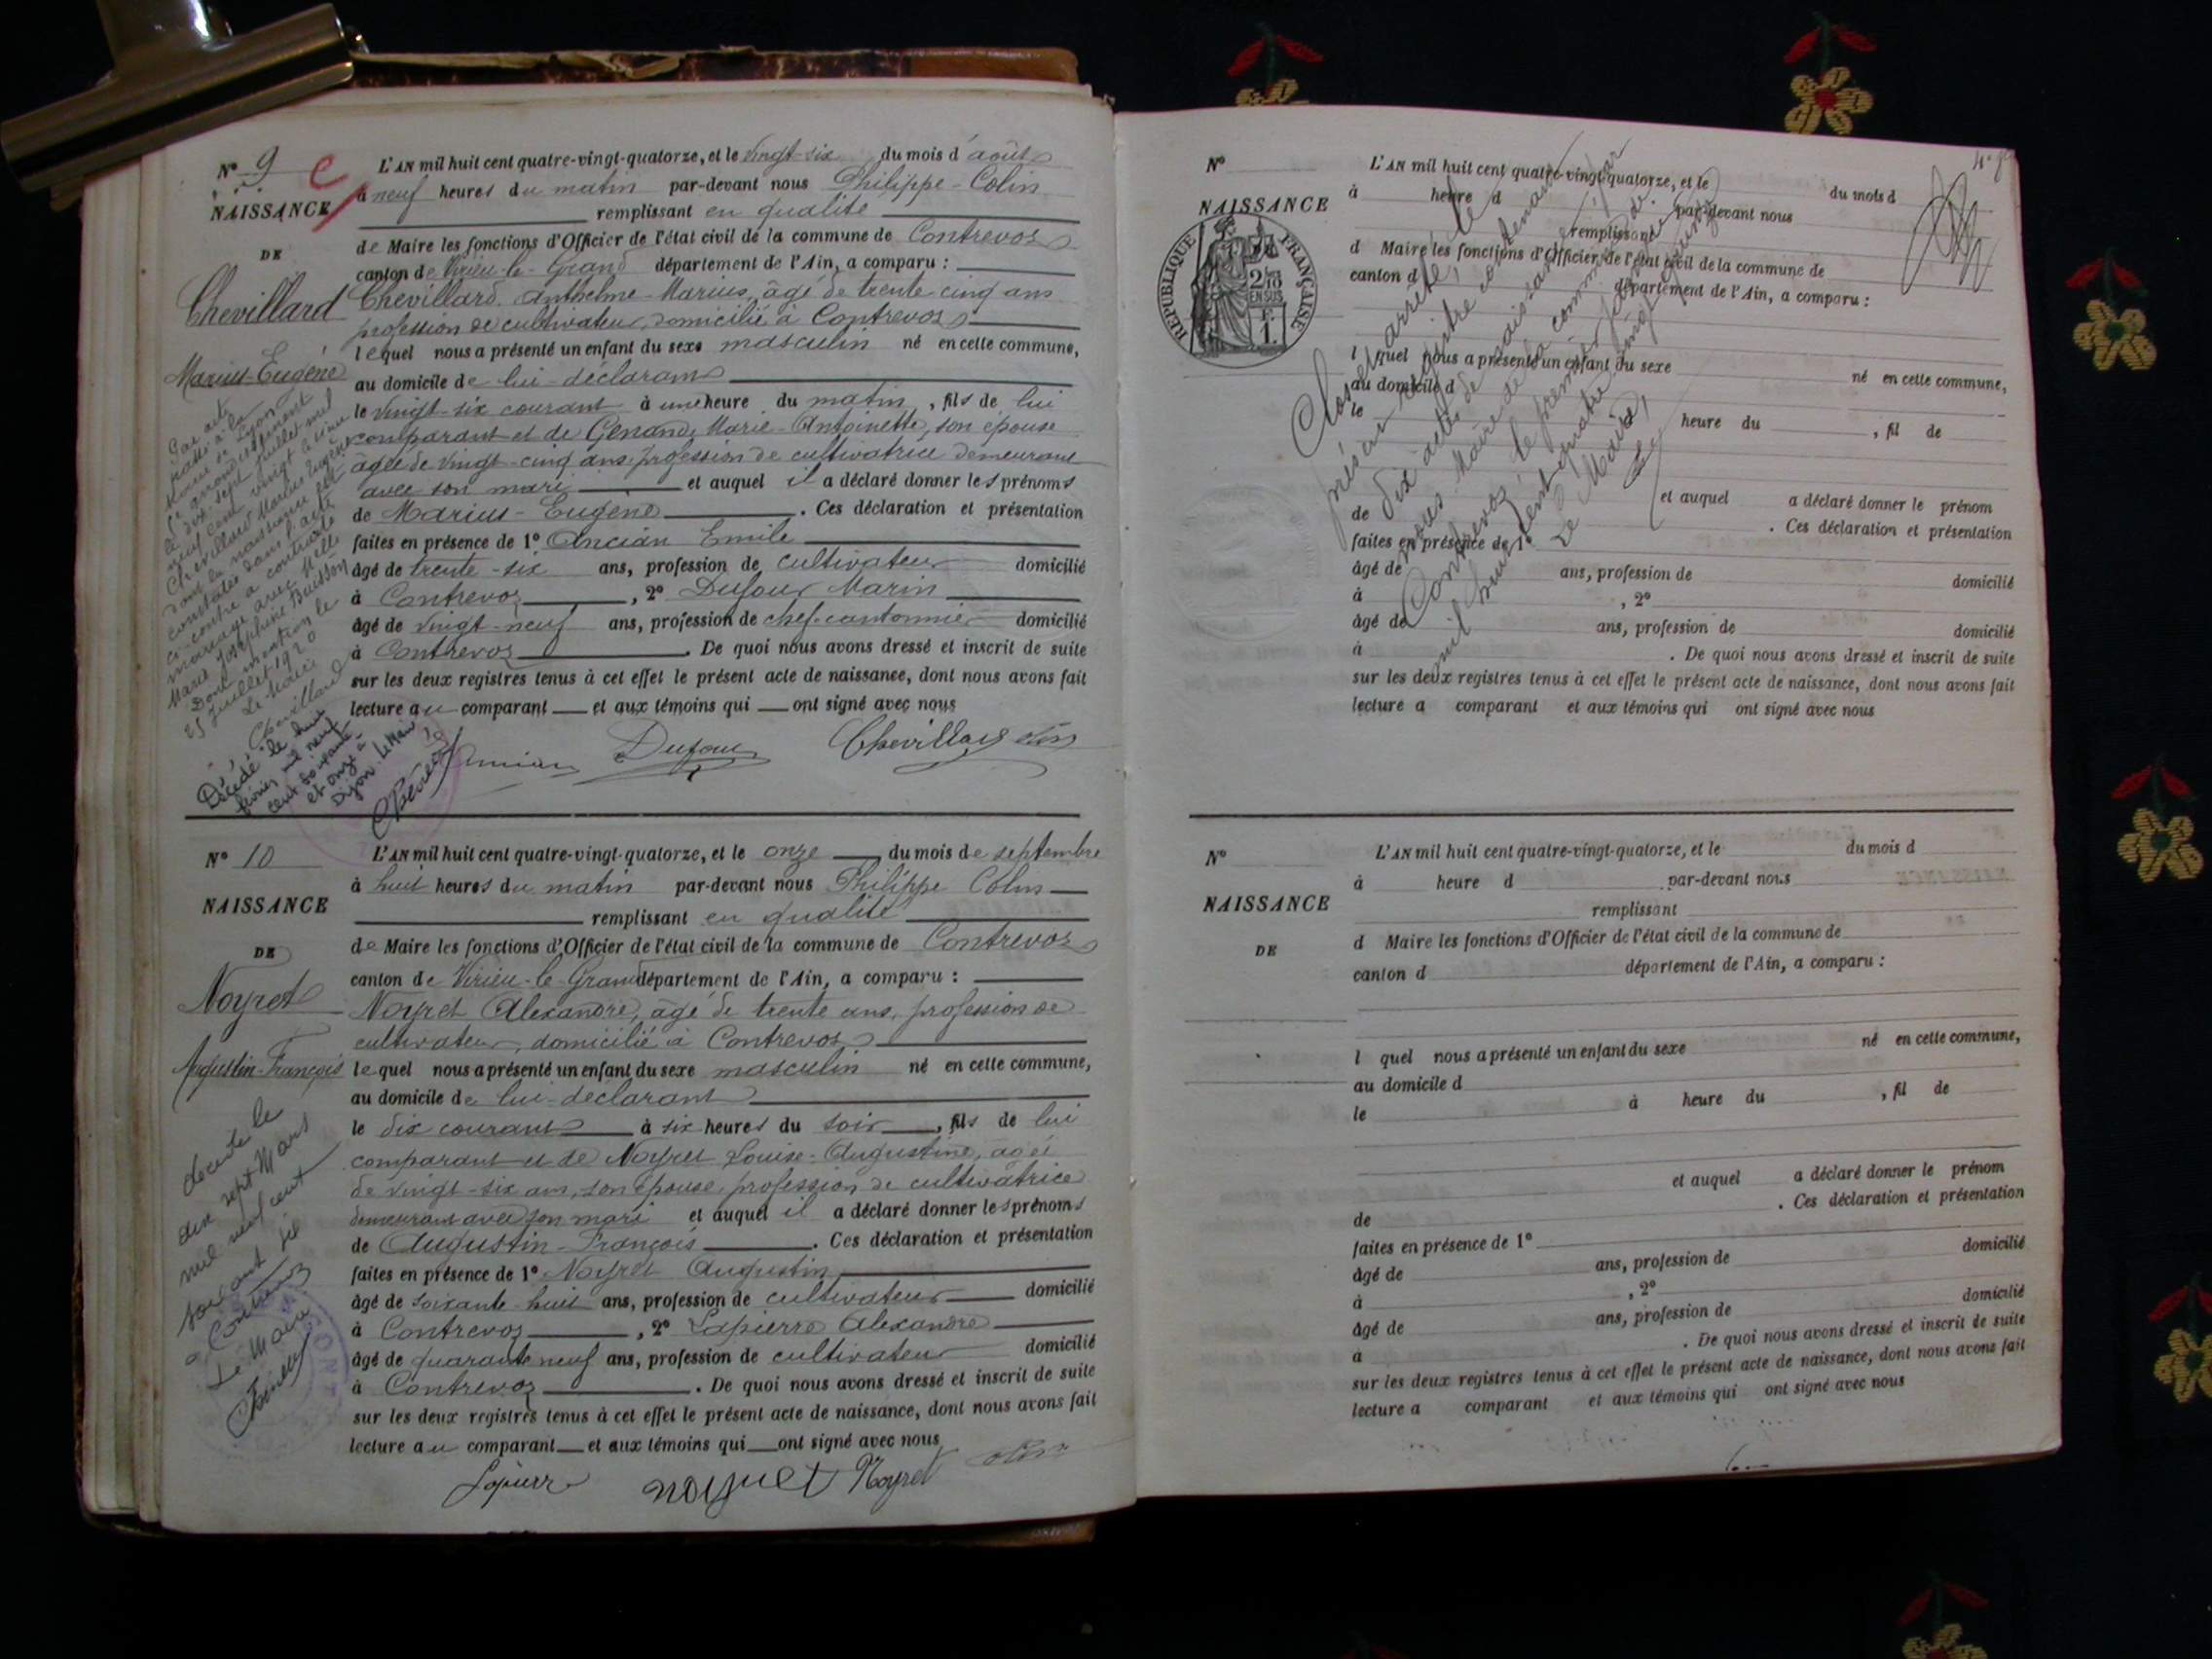 N° 9
NAISSANCE
DE
Chevillard
Marius-Eugène
Par acte
passé à la
Mairie de Lyon
arrondissement
le dix-sept juillet mil
neuf cent vingt
Chevillard Marius Eugène
dont la naissance est
constatée dans l'acte
ci-contre a contracté
mariage avec Melle
Marie Joséphine Buisson
Dont mention le
25 juillet 1920
Le Maire
Chevillard
Décédé le
février mil neuf
cent soixante
et onze à
Dijon. Le Maire
L'AN mil huit cent quatre-vingt-quatorze, et le vingt-six du mois d'août
à neuf heures du matin par-devant nous Philippe-Colin
remplissant en qualité
de Maire les fonctions d'Officier de l'état civil de la commune de Contrevoz
canton de Virieu-le-Grand département de l'Ain, a comparu :
Chevillard Anthelme-Marius, âgé de trente cinq ans
profession de cultivateur, domicilié à Contrevoz
lequel nous a présenté un enfant du sexe masculin né en cette commune,
au domicile de lui-déclarant
le vingt-six courant à une heure du matin, fils de lui
comparant et de Genand, Marie-Antoinette, son épouse
âgée de vingt-cinq ans, profession de cultivatrice demeurant
avec son mari et auquel il a déclaré donner les prénoms
de Marius-Eugène. Ces déclaration et présentation
faites en présence de 1° Ancian Emile
âgé de trente-six ans, profession de cultivateur domicilié
à Contrevoz, 2° Dufour Marin
âgé de vingt-neuf ans, profession de chef-cantonnier domicilié
à Contrevoz. De quoi nous avons dressé et inscrit de suite
sur les deux registres tenus à cet effet le présent acte de naissance, dont nous avons fait
lecture au comparant et aux témoins qui ont signé avec nous
Ancian Dufour Chevillard Colin
N° 10
NAISSANCE
DE
Noyret
Augustin-François
décédé le
dix sept Mars
mil neuf cent
soixant six
à Contrevoz
Le Maire
L'AN mil huit cent quatre-vingt-quatorze, et le onze du mois de septembre
à huit heures du matin par-devant nous Philippe Colin
remplissant en qualité
de Maire les fonctions d'Officier de l'état civil de la commune de Contrevoz
canton de Virieu-le-Grand département de l'Ain, a comparu :
Noyret Alexandre, âgé de trente ans, profession de
cultivateur, domicilié à Contrevoz
lequel nous a présenté un enfant du sexe masculin né en cette commune,
au domicile de lui-déclarant
le dix courant à six heures du soir, fils de lui
comparant et de Noyret Louise-Augustine, âgée
de vingt-six ans, son épouse, profession de cultivatrice
demeurant avec son mari et auquel il a déclaré donner les prénoms
de Augustin-François. Ces déclaration et présentation
faites en présence de 1° Noyret Augustin
âgé de soixante-huit ans, profession de cultivateur domicilié
à Contrevoz, 2° Lapierre Alexandre
âgé de quarante neuf ans, profession de cultivateur domicilié
à Contrevoz. De quoi nous avons dressé et inscrit de suite
sur les deux registres tenus à cet effet le présent acte de naissance, dont nous avons fait
lecture au comparant et aux témoins qui ont signé avec nous
Lapierre Noyret Noyret Colin
N°
NAISSANCE
RÉPUBLIQUE FRANÇAISE
2/10
EN SUS
F.
1.
L'AN mil huit cent quatre-vingt-quatorze, et le du mois d
à heure d par-devant nous
remplissant
d Maire les fonctions d'Officier de l'état civil de la commune de
canton d département de l'Ain, a comparu :
l quel nous a présenté un enfant du sexe né en cette commune,
au domicile d
le heure du , fil de
et auquel a déclaré donner le prénom
de . Ces déclaration et présentation
faites en présence de 1°
âgé de ans, profession de domicilié
à , 2°
âgé de ans, profession de domicilié
à . De quoi nous avons dressé et inscrit de suite
sur les deux registres tenus à cet effet le présent acte de naissance, dont nous avons fait
lecture a comparant et aux témoins qui ont signé avec nous
Clos et arrêté, le
présent registre contenant
dix actes de naissance par
nous Maire de la commune de
Contrevoz, le premier janvier
mil huit cent quatre vingt quinze
Le Maire,
N°
NAISSANCE
DE
L'AN mil huit cent quatre-vingt-quatorze, et le du mois d
à heure d par-devant nous
remplissant
d Maire les fonctions d'Officier de l'état civil de la commune de
canton d département de l'Ain, a comparu :
l quel nous a présenté un enfant du sexe né en cette commune,
au domicile d
le à heure du , fil de
et auquel a déclaré donner le prénom
de . Ces déclaration et présentation
faites en présence de 1°
âgé de ans, profession de domicilié
à , 2°
âgé de ans, profession de domicilié
à . De quoi nous avons dressé et inscrit de suite
sur les deux registres tenus à cet effet le présent acte de naissance, dont nous avons fait
lecture a comparant et aux témoins qui ont signé avec nous